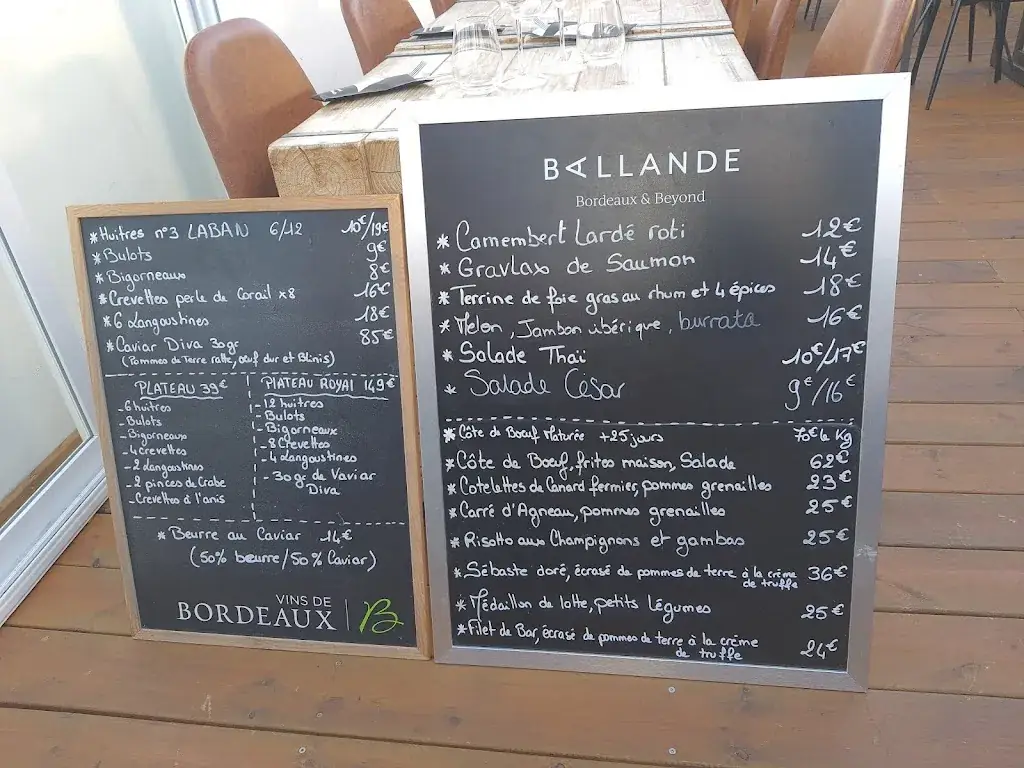 *Huitres n°3 LABAN 6/12 10€/19€
*Bulots 9€
*Bigorneaux 8€
*Crevettes perle de Corail x8 16€
*6 Langoustines 18€
*Caviar Diva 30gr 85€
(Pommes de Terre ratte, oeuf dur et Blinis)
PLATEAU 39€
-6 huitres
-Bulots
-Bigorneaux
-4 crevettes
-2 Langoustines
-2 pinces de Crabe
-Crevettes à l'anis
PLATEAU ROYAL 149€
-12 huitres
-Bulots
-Bigorneaux
-8 Crevettes
-4 Langoustines
-30gr de Vaviar
Diva
* Beurre au Caviar 14€
(50% beurre/50% Caviar)
VINS DE
BORDEAUX | B
BALLANDE
Bordeaux & Beyond
*Camembert Lardé roti 12€
*Gravlax de Saumon 14€
*Terrine de foie gras au rhum et 4 épices 18€
*Melon, Jambon ibérique, burrata 16€
*Salade Thaï 10€/17€
*Salade César 9€/16€
*Côte de Bœuf Maturée +25 jours 70€ le Kg
*Côte de Bœuf, frites maison, Salade 62€
*Cotelettes de Canard fermier, pommes grenailles 23€
*Carré d'Agneau, pommes grenailles 25€
*Risotto aux Champignons et gambas 25€
*Sébaste doré, écrasé de pommes de terre à la crème
de truffe 36€
*Médaillon de lotte, petits légumes 25€
*Filet de Bar, écrasé de pommes de terre à la crème
de truffe 24€